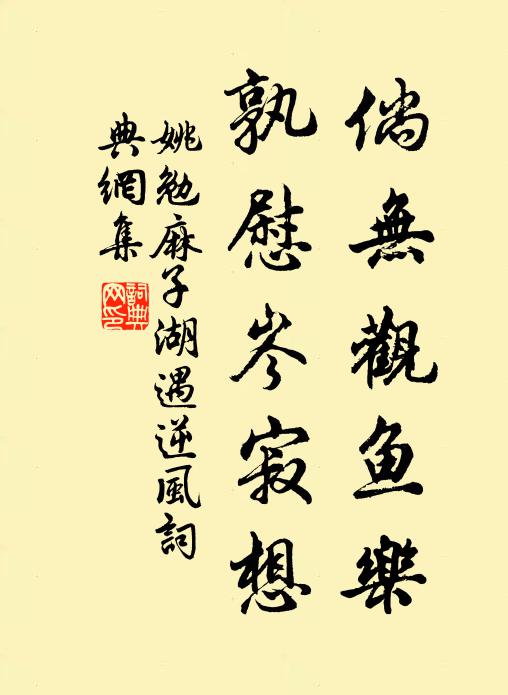 倘無觀鱼樂
孰慰岑寂想
姚勉麻子湖遇逆風詞
典網集
詞典網印